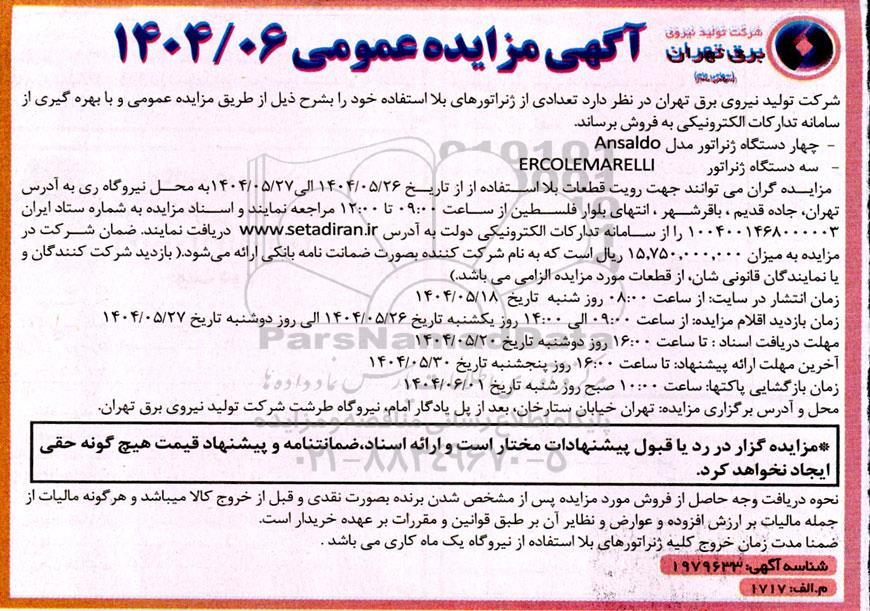 شرکت تولید نیروی
برق تهران
(سهامی عام)
آگهی مزایده عمومی ۱۴۰۴/۰۶
شرکت تولید نیروی برق تهران در نظر دارد تعدادی از ژنراتورهای بلا استفاده خود را بشرح ذیل از طریق مزایده عمومی و با بهره گیری از
سامانه تدارکات الکترونیکی به فروش برساند.
- چهار دستگاه ژنراتور مدل Ansaldo
- سه دستگاه ژنراتور ERCOLEMARELLI
مزایده گران می توانند جهت رویت قطعات بلا استفاده از از تاریخ ۱۴۰۴/۰۵/۲۶ الی ۱۴۰۴/۰۵/۲۷ به محل نیروگاه ری به آدرس
تهران، جاده قدیم ، باقرشهر ، انتهای بلوار فلسطین از ساعت ۰۹:۰۰ تا ۱۲:۰۰ مراجعه نمایند و اسناد مزایده به شماره ستاد ایران
۱۰۰۴۰۰۱۴۶۸۰۰۰۰۰۳ را از سامانه تدارکات الکترونیکی دولت به آدرس www.setadiran.ir دریافت نمایند. ضمان شرکت در
مزایده به میزان ۱۵,۷۵۰,۰۰۰,۰۰۰ ریال است که به نام شرکت کننده بصورت ضمانت نامه بانکی ارائه می‌شود.( بازدید شرکت کنندگان و
یا نمایندگان قانونی شان، از قطعات مورد مزایده الزامی می باشد.)
زمان انتشار در سایت: از ساعت ۰۸:۰۰ روز شنبه تاریخ ۱۴۰۴/۰۵/۱۸
زمان بازدید اقلام مزایده: از ساعت ۰۹:۰۰ الی ۱۴:۰۰ روز یکشنبه تاریخ ۱۴۰۴/۰۵/۲۶ الی روز دوشنبه تاریخ ۱۴۰۴/۰۵/۲۷
مهلت دریافت اسناد : تا ساعت ۱۶:۰۰ روز دوشنبه تاریخ ۱۴۰۴/۰۵/۲۰
آخرین مهلت ارائه پیشنهاد: تا ساعت ۱۶:۰۰ روز پنجشنبه تاریخ ۱۴۰۴/۰۵/۳۰
زمان بازگشایی پاکتها: ساعت ۱۰:۰۰ صبح روز شنبه تاریخ ۱۴۰۴/۰۶/۰۱
محل و آدرس برگزاری مزایده: تهران خیابان ستارخان، بعد از پل یادگار امام، نیروگاه طرشت شرکت تولید نیروی برق تهران.
*مزایده گزار در رد یا قبول پیشنهادات مختار است و ارائه اسناد،ضمانتنامه و پیشنهاد قیمت هیچ گونه حقی
ایجاد نخواهد کرد.
نحوه دریافت وجه حاصل از فروش مورد مزایده پس از مشخص شدن برنده بصورت نقدی و قبل از خروج کالا میباشد و هرگونه مالیات از
جمله مالیات بر ارزش افزوده و عوارض و نظایر آن بر طبق قوانین و مقررات بر عهده خریدار است.
ضمنا مدت زمان خروج کلیه ژنراتورهای بلا استفاده از نیروگاه یک ماه کاری می باشد .
شناسه آگهی: ۱۹۷۹۶۳۳
م.الف: ۱۷۱۷
ParsNamadData
پایگاه اطلاع رسانی مناقصه و مزایده
۰۲۱-۸۸۳۴۹۶۷۰-۵